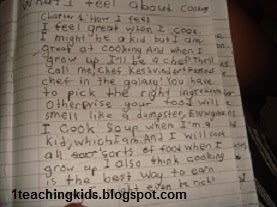 What I feel about Cooking
Chapter 1 "How I feel
I feel great when I cook
I might be a kid but I am
great at cooking And when I
grow up I'll be a chef They'll
call me, Chef
chef in the galaxy! You have
to pick the right ingredients or
Otherwise your food will
smell like a dumpster.
I cook soup when I'm a
kid, And I will cook
all sorts of food when I
grow up I also think cooking
is the best way to earn
even be rich
1teachingkids.blogspot.com